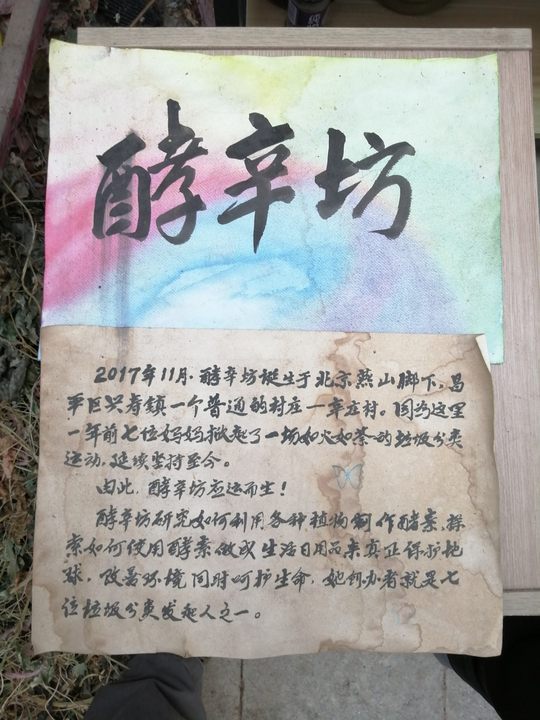 酵辛坊
2017年11月，酵辛坊诞生于北京燕山脚下，昌
平区兴寿镇一个普通的村庄一辛庄村。因为这里
一年前七位妈妈掀起了一场如火如荼的垃圾分类
运动，延续坚持至今。
由此，酵辛坊应运而生！
酵辛坊研究如何利用各种植物制作酵素，探
索如何使用酵素做成生活日用品来真正保护地
球，改善环境同时呵护生命，她创办者就是七
位垃圾分类发起人之一。